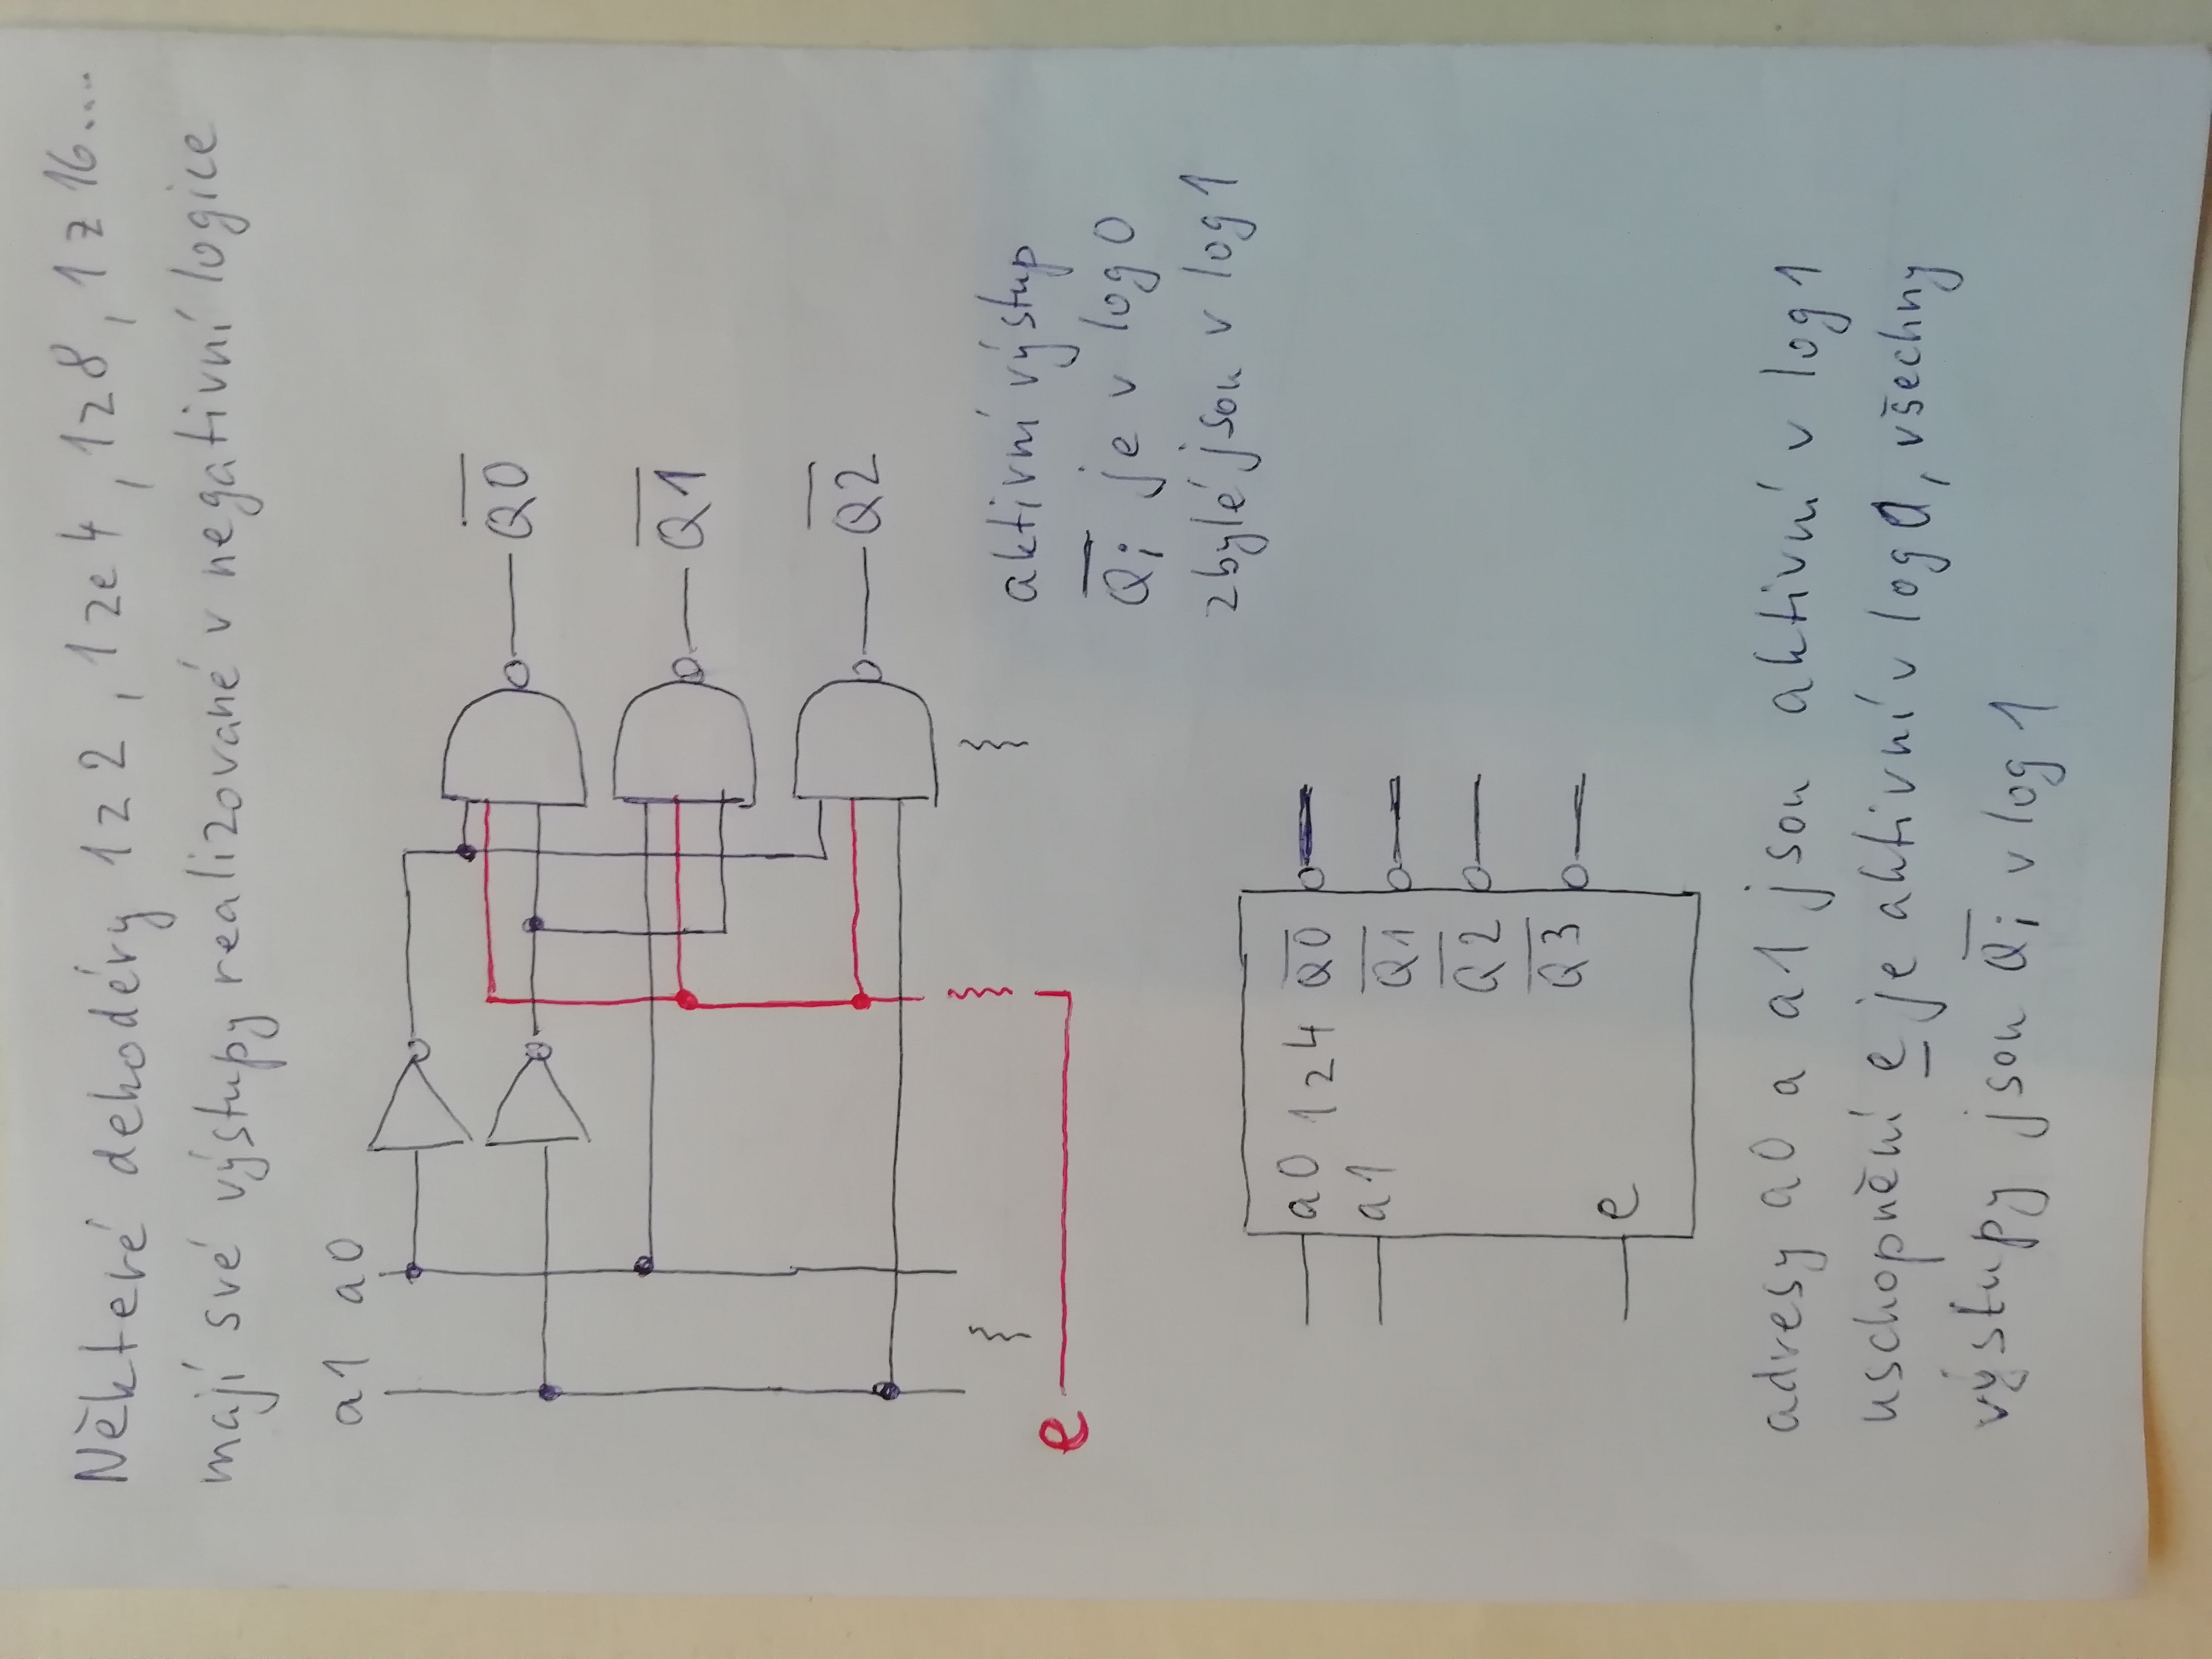 Některé dekodéry 1z2, 1ze4, 1z8, 1z16....
mají své výstupy realizované v negativní logice
a1 a0
Q̅0̅
Q̅1̅
Q̅2̅
e
aktivní výstup
Q̅i̅ je v log0
zbylé jsou v log1
a0 1z4 Q̅0̅
a1 Q̅1̅
Q̅2̅
Q̅3̅
e
adresy a0 a a1 jsou aktivní v log1
uschopnění e je aktivní v log, všechny
výstupy jsou Q̅i̅ v log1